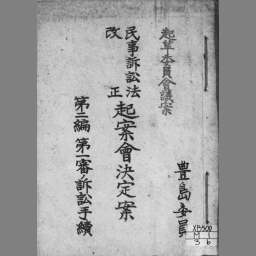 起草委員會議案
民事訴訟法
改正
起案會決定案
第二編 第一審ノ訴訟手續
豊島委員
XB500
M 1
3 6